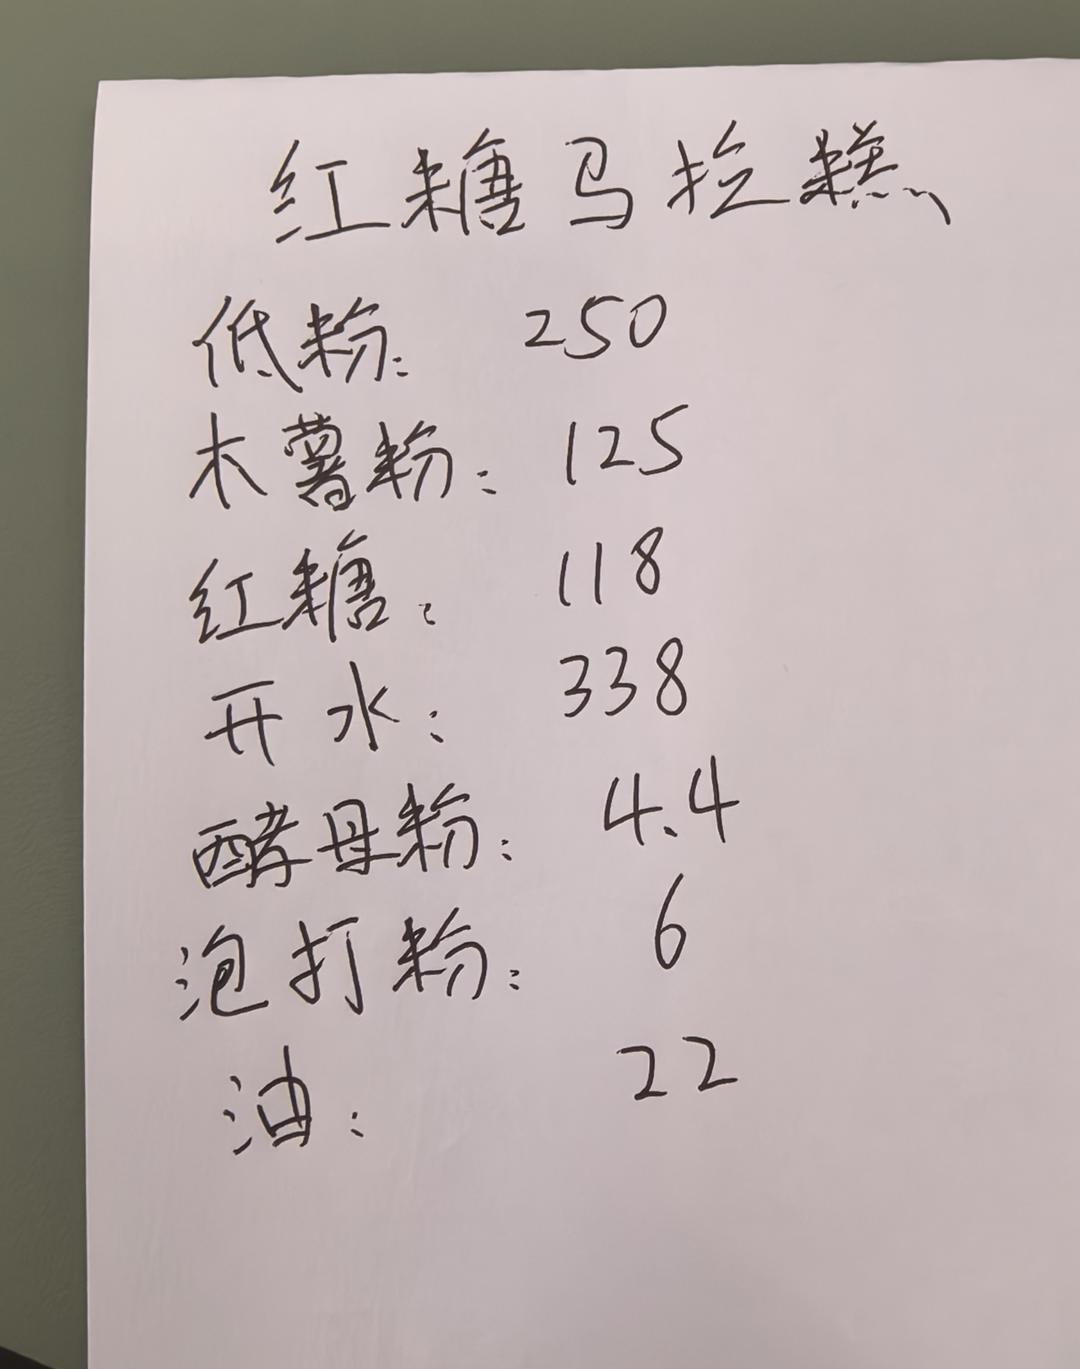 红糖马拉糕
低粉: 250
木薯粉: 125
红糖: 118
开水: 338
酵母粉: 4.4
泡打粉: 6
油: 22